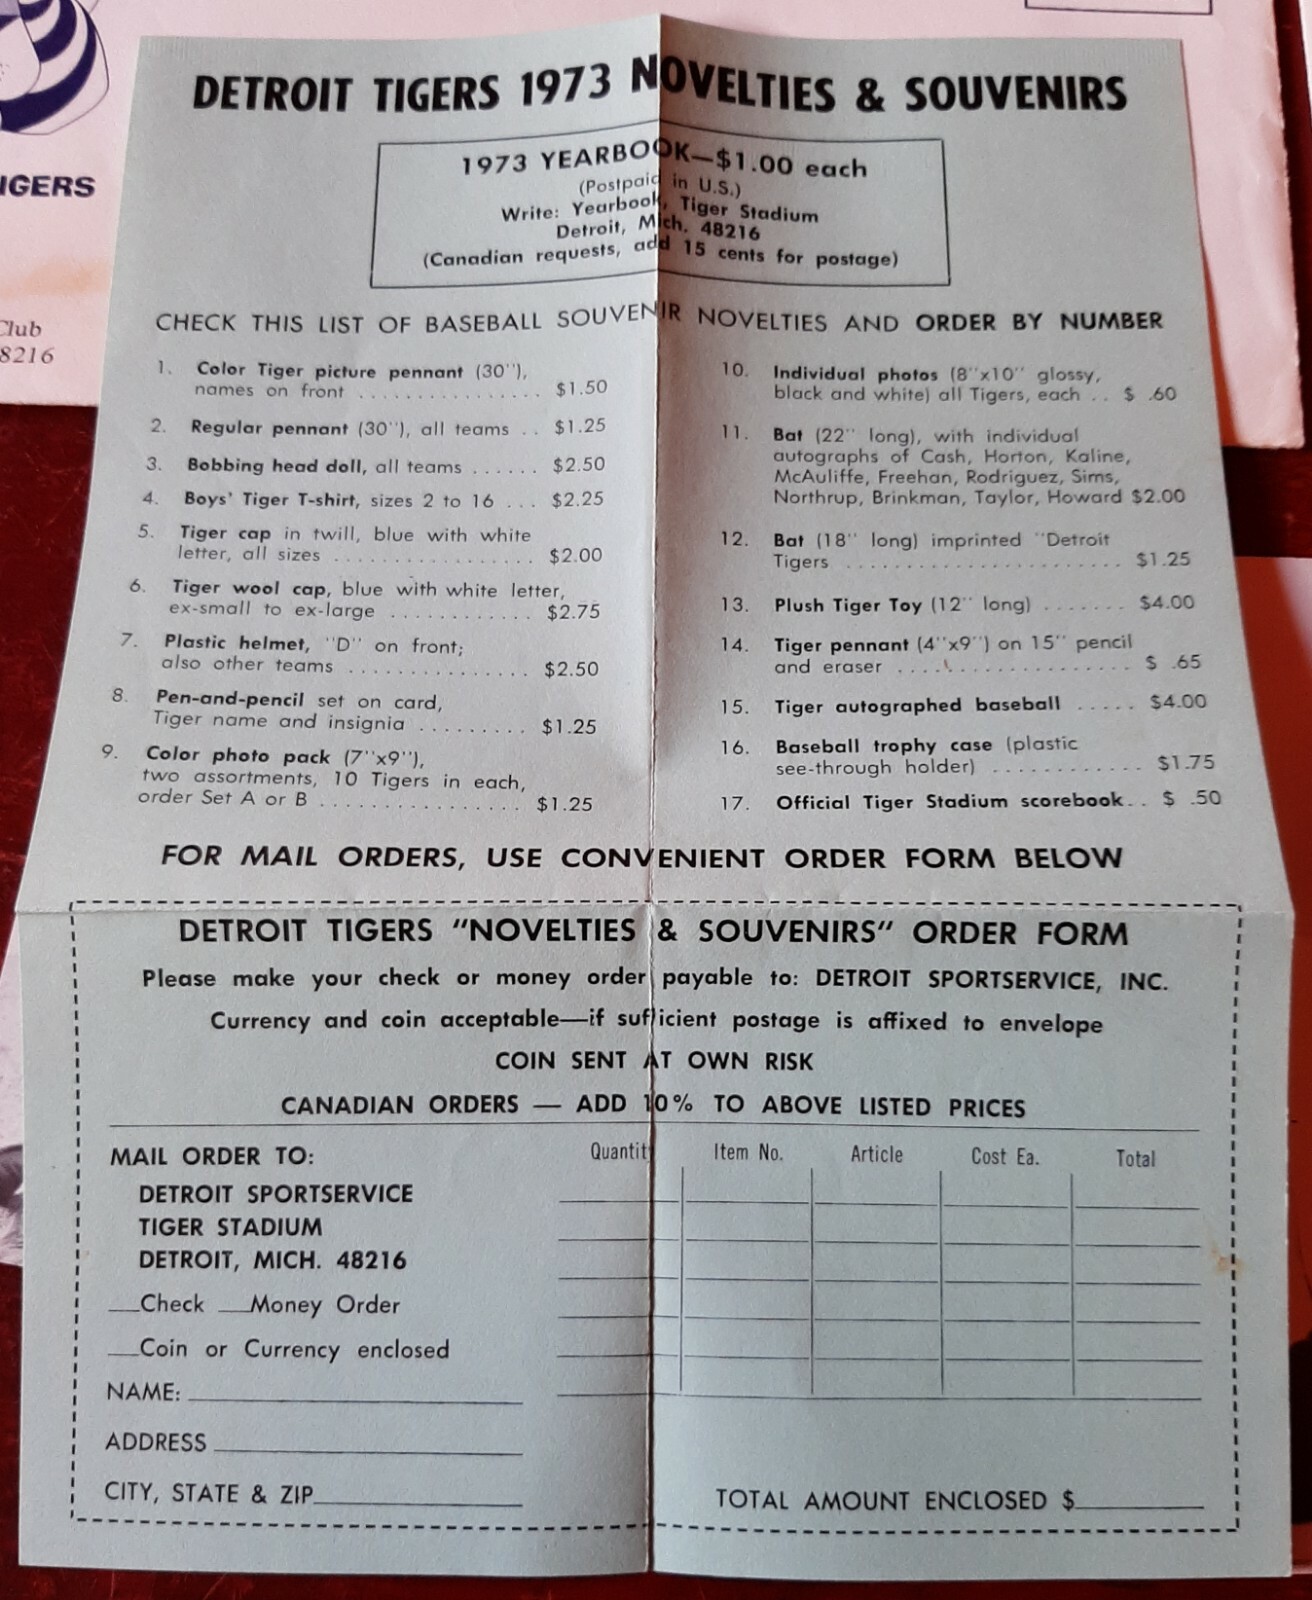 IGERS
Club
8216
DETROIT TIGERS 1973 NOVELTIES & SOUVENIRS
1973 YEARBOOK—$1.00 each
(Postpaid in U.S.)
Write: Yearbook, Tiger Stadium
Detroit, Mich. 48216
(Canadian requests, add 15 cents for postage)
CHECK THIS LIST OF BASEBALL SOUVENIR NOVELTIES AND ORDER BY NUMBER
1. Color Tiger picture pennant (30''),
names on front ................ $1.50
2. Regular pennant (30''), all teams .. $1.25
3. Bobbing head doll, all teams ...... $2.50
4. Boys' Tiger T-shirt, sizes 2 to 16 ... $2.25
5. Tiger cap in twill, blue with white
letter, all sizes ................. $2.00
6. Tiger wool cap, blue with white letter,
ex-small to ex-large ............ $2.75
7. Plastic helmet, "D" on front;
also other teams ............... $2.50
8. Pen-and-pencil set on card,
Tiger name and insignia ......... $1.25
9. Color photo pack (7''x9''),
two assortments, 10 Tigers in each,
order Set A or B ................. $1.25
10. Individual photos (8''x10'' glossy,
black and white) all Tigers, each .. $ .60
11. Bat (22'' long), with individual
autographs of Cash, Horton, Kaline,
McAuliffe, Freehan, Rodriguez, Sims,
Northrup, Brinkman, Taylor, Howard $2.00
12. Bat (18'' long) imprinted "Detroit
Tigers ........................ $1.25
13. Plush Tiger Toy (12'' long) ....... $4.00
14. Tiger pennant (4''x9'') on 15'' pencil
and eraser .................... $ .65
15. Tiger autographed baseball ..... $4.00
16. Baseball trophy case (plastic
see-through holder) ............ $1.75
17. Official Tiger Stadium scorebook.. $ .50
FOR MAIL ORDERS, USE CONVENIENT ORDER FORM BELOW
DETROIT TIGERS "NOVELTIES & SOUVENIRS" ORDER FORM
Please make your check or money order payable to: DETROIT SPORTSERVICE, INC.
Currency and coin acceptable—if sufficient postage is affixed to envelope
COIN SENT AT OWN RISK
CANADIAN ORDERS — ADD 10% TO ABOVE LISTED PRICES
MAIL ORDER TO:
DETROIT SPORTSERVICE
TIGER STADIUM
DETROIT, MICH. 48216
___Check ___Money Order
___Coin or Currency enclosed
NAME:
ADDRESS
CITY, STATE & ZIP
Quantity Item No. Article Cost Ea. Total
TOTAL AMOUNT ENCLOSED $